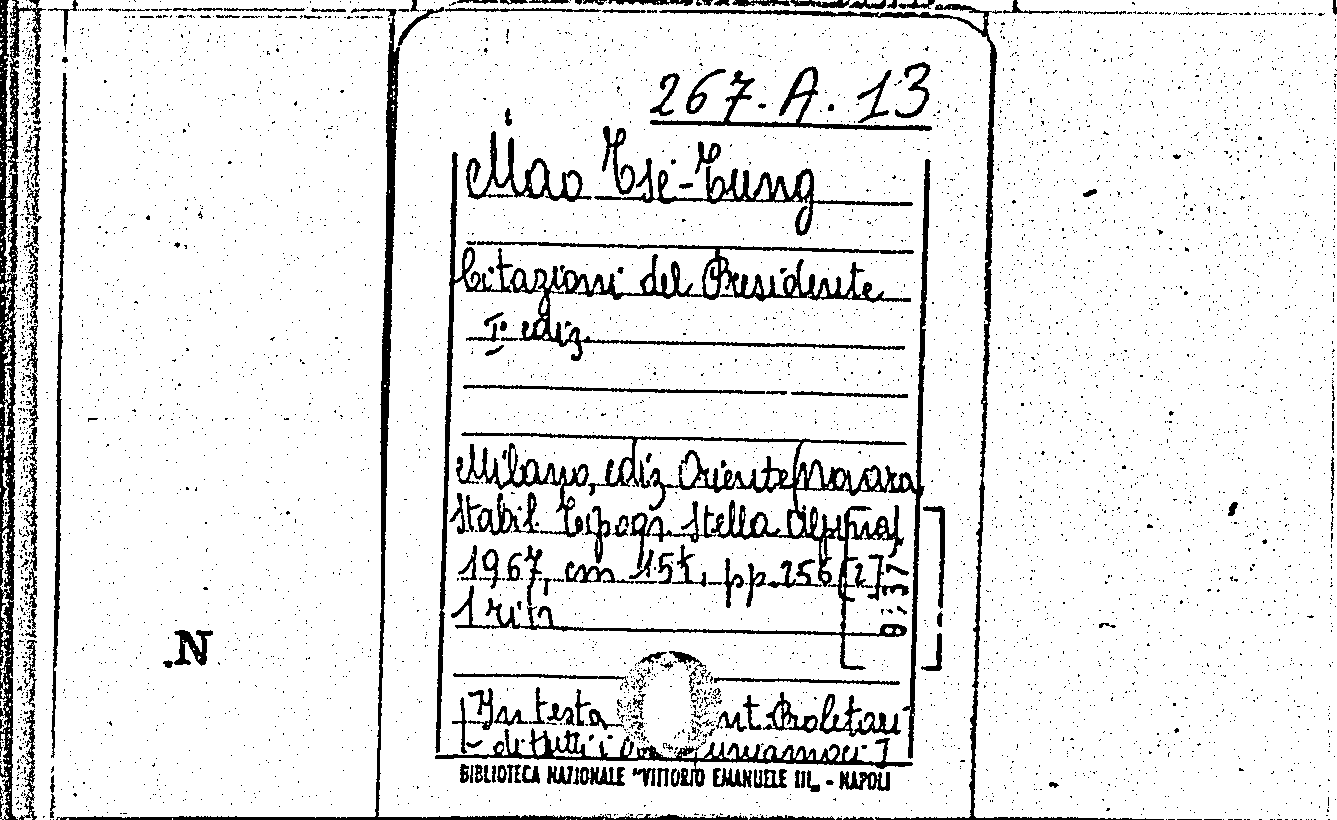 267. A. 13
Mao Tsé-Tung
Citazioni del Presidente
Iª ediz.
Milano, ediz. Oriente (Novara
Stabil. Tipogr. Stella Alpina)
1967, cm 15½, pp. 256 [2]
1 ritr.
[In testa nt. Proletari
di tutti i uniamoci]
BIBLIOTECA NAZIONALE "VITTORIO EMANUELE III„ - NAPOLI
.N